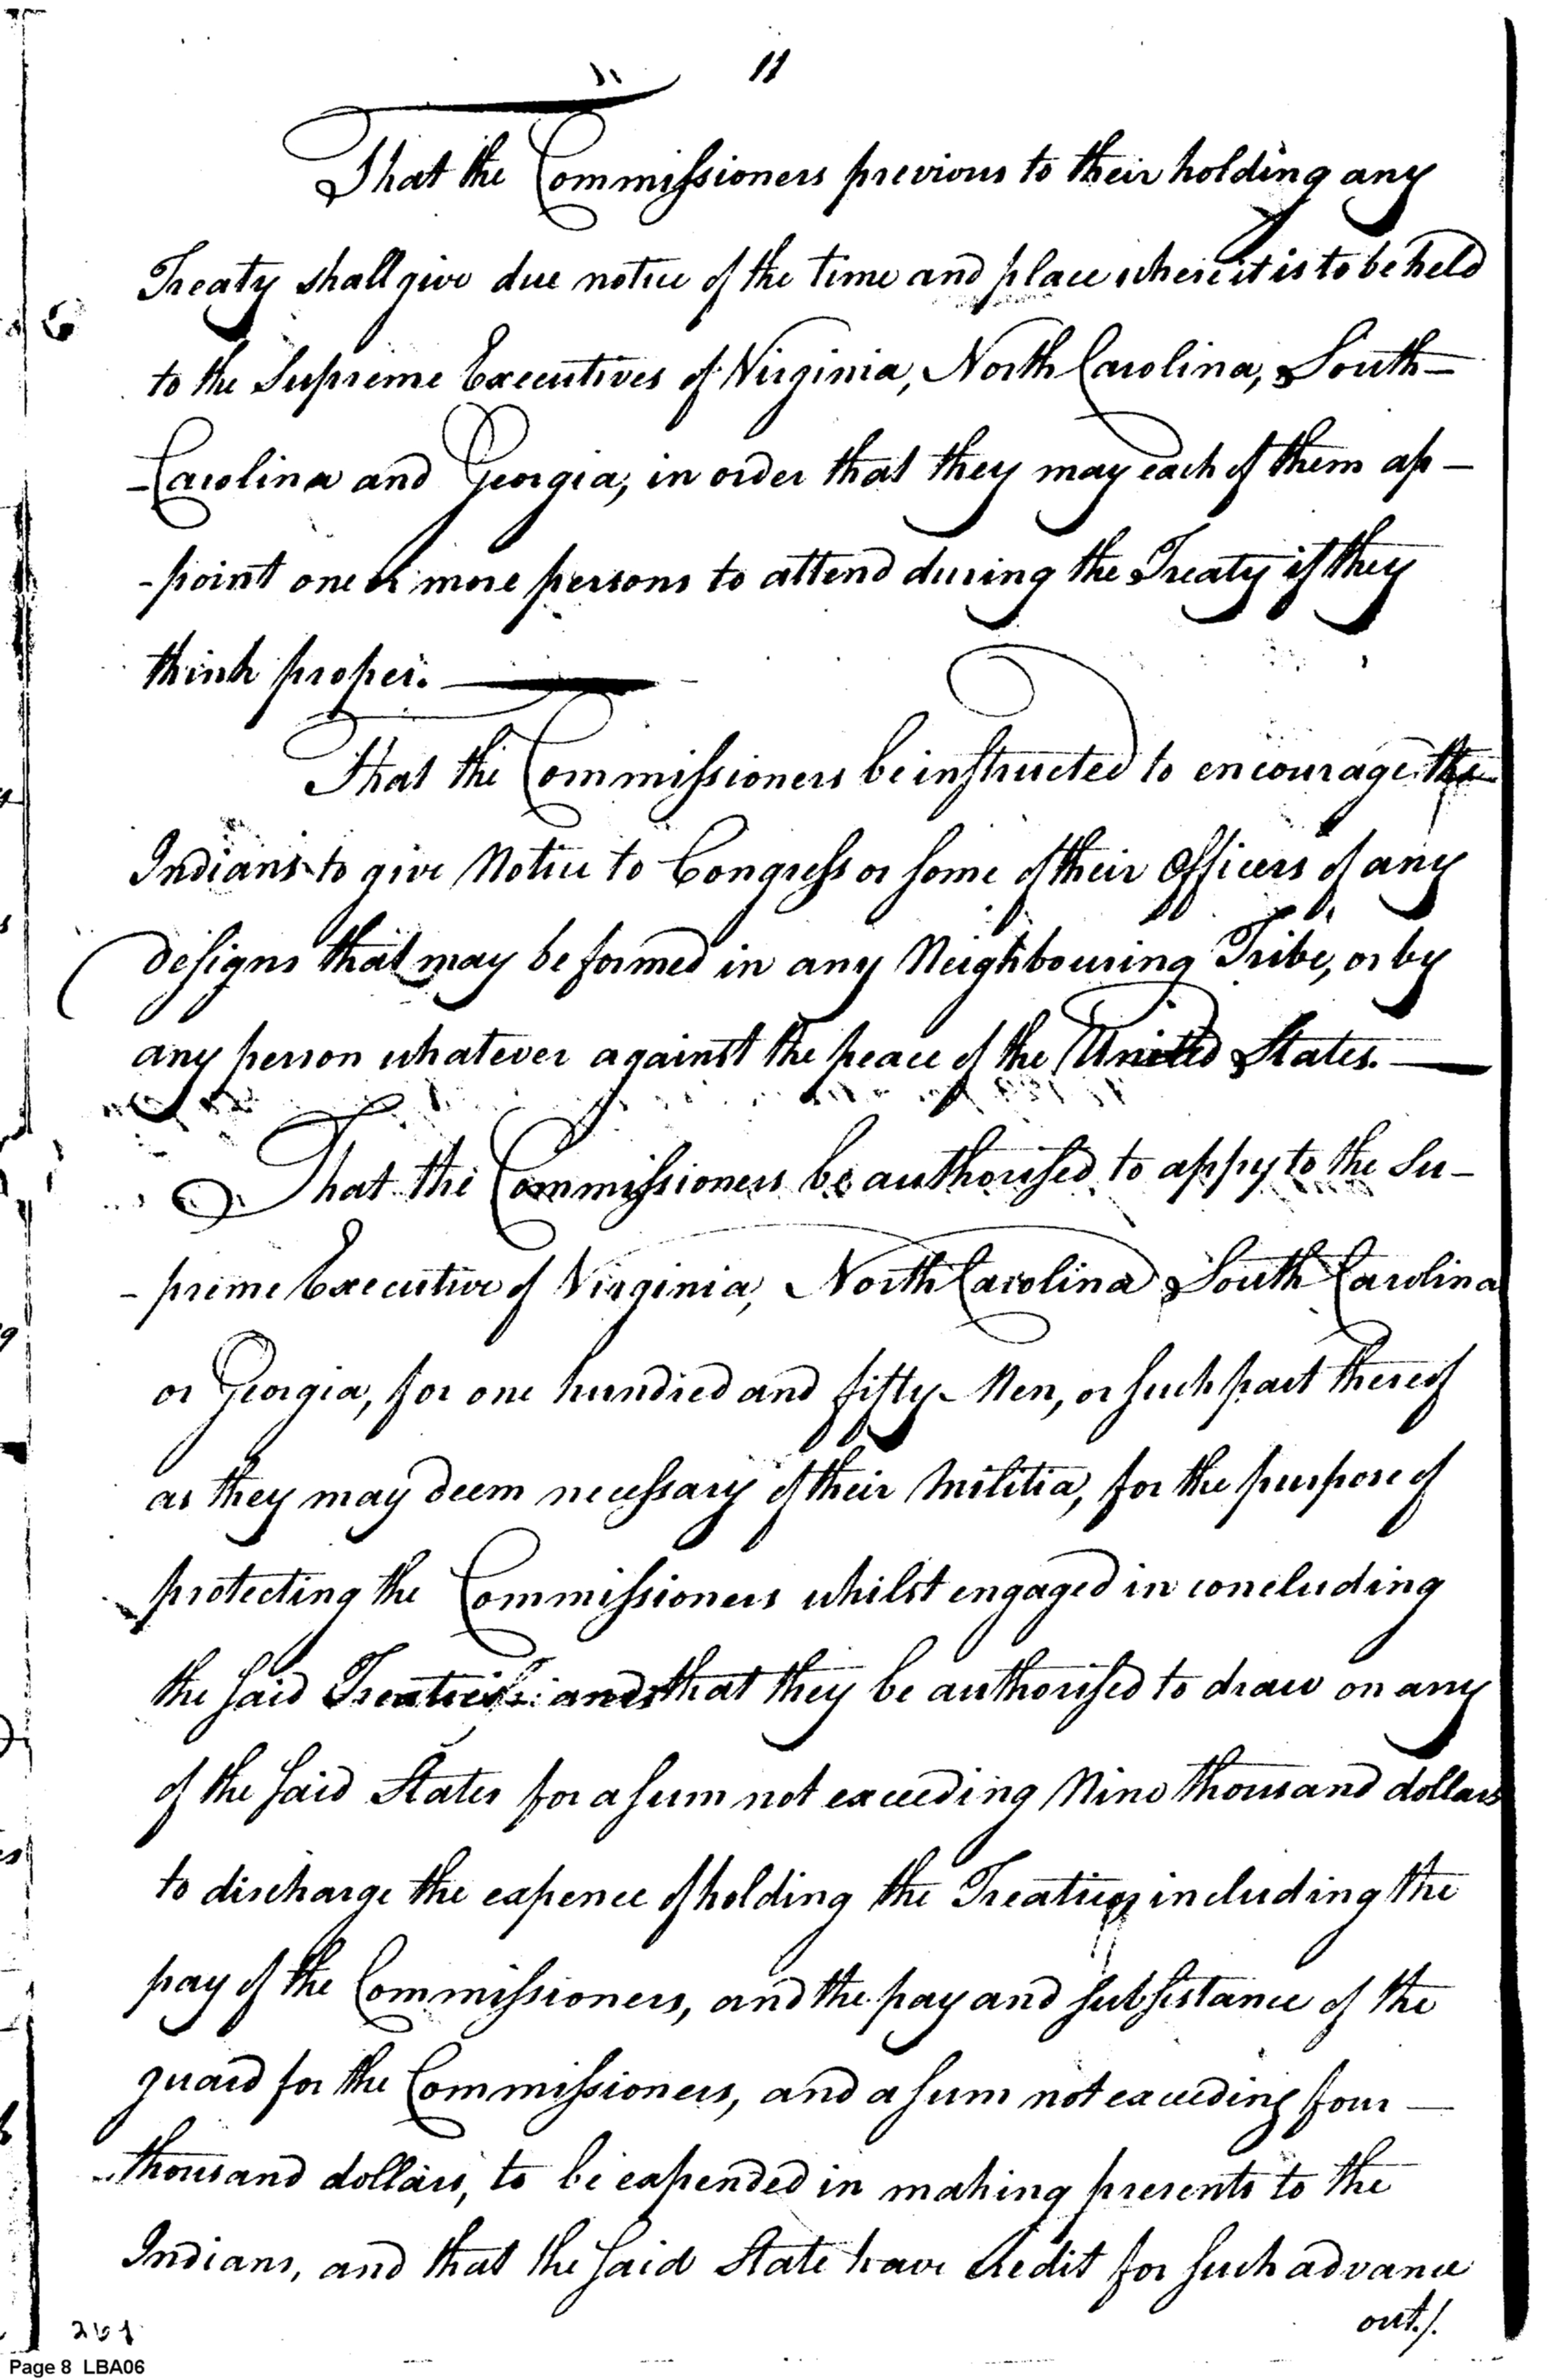 11
That the Commissioners previous to their holding any
Treaty shall give due notice of the time and place where it is to be held
to the Supreme Executives of Virginia, North Carolina, South-
-Carolina and Georgia, in order that they may each of them ap-
-point one or more persons to attend during the Treaty if they
think proper.
That the Commissioners be instructed to encourage the
Indians to give Notice to Congress or some of their Officers of any
designs that may be formed in any Neighbouring Tribe, or by
any person whatever against the peace of the United States.
That the Commissioners be authorised to appy to the Su-
-preme Executive of Virginia, North Carolina South Carolina
or Georgia, for one hundred and fifty Men, or such part thereof
as they may deem necessary of their Militia, for the purpose of
protecting the Commissioners whilst engaged in concluding
the said Treaties: and that they be authorised to draw on any
of the said States for a sum not exceeding Nine thousand dollars
to discharge the expence of holding the Treaties including the
pay of the Commissioners, and the pay and subsistance of the
guard for the Commissioners, and a sum not exceeding four
thousand dollars, to be expended in making presents to the
Indians, and that the said State have Credit for such advance
out./.
261
Page 8 LBA06